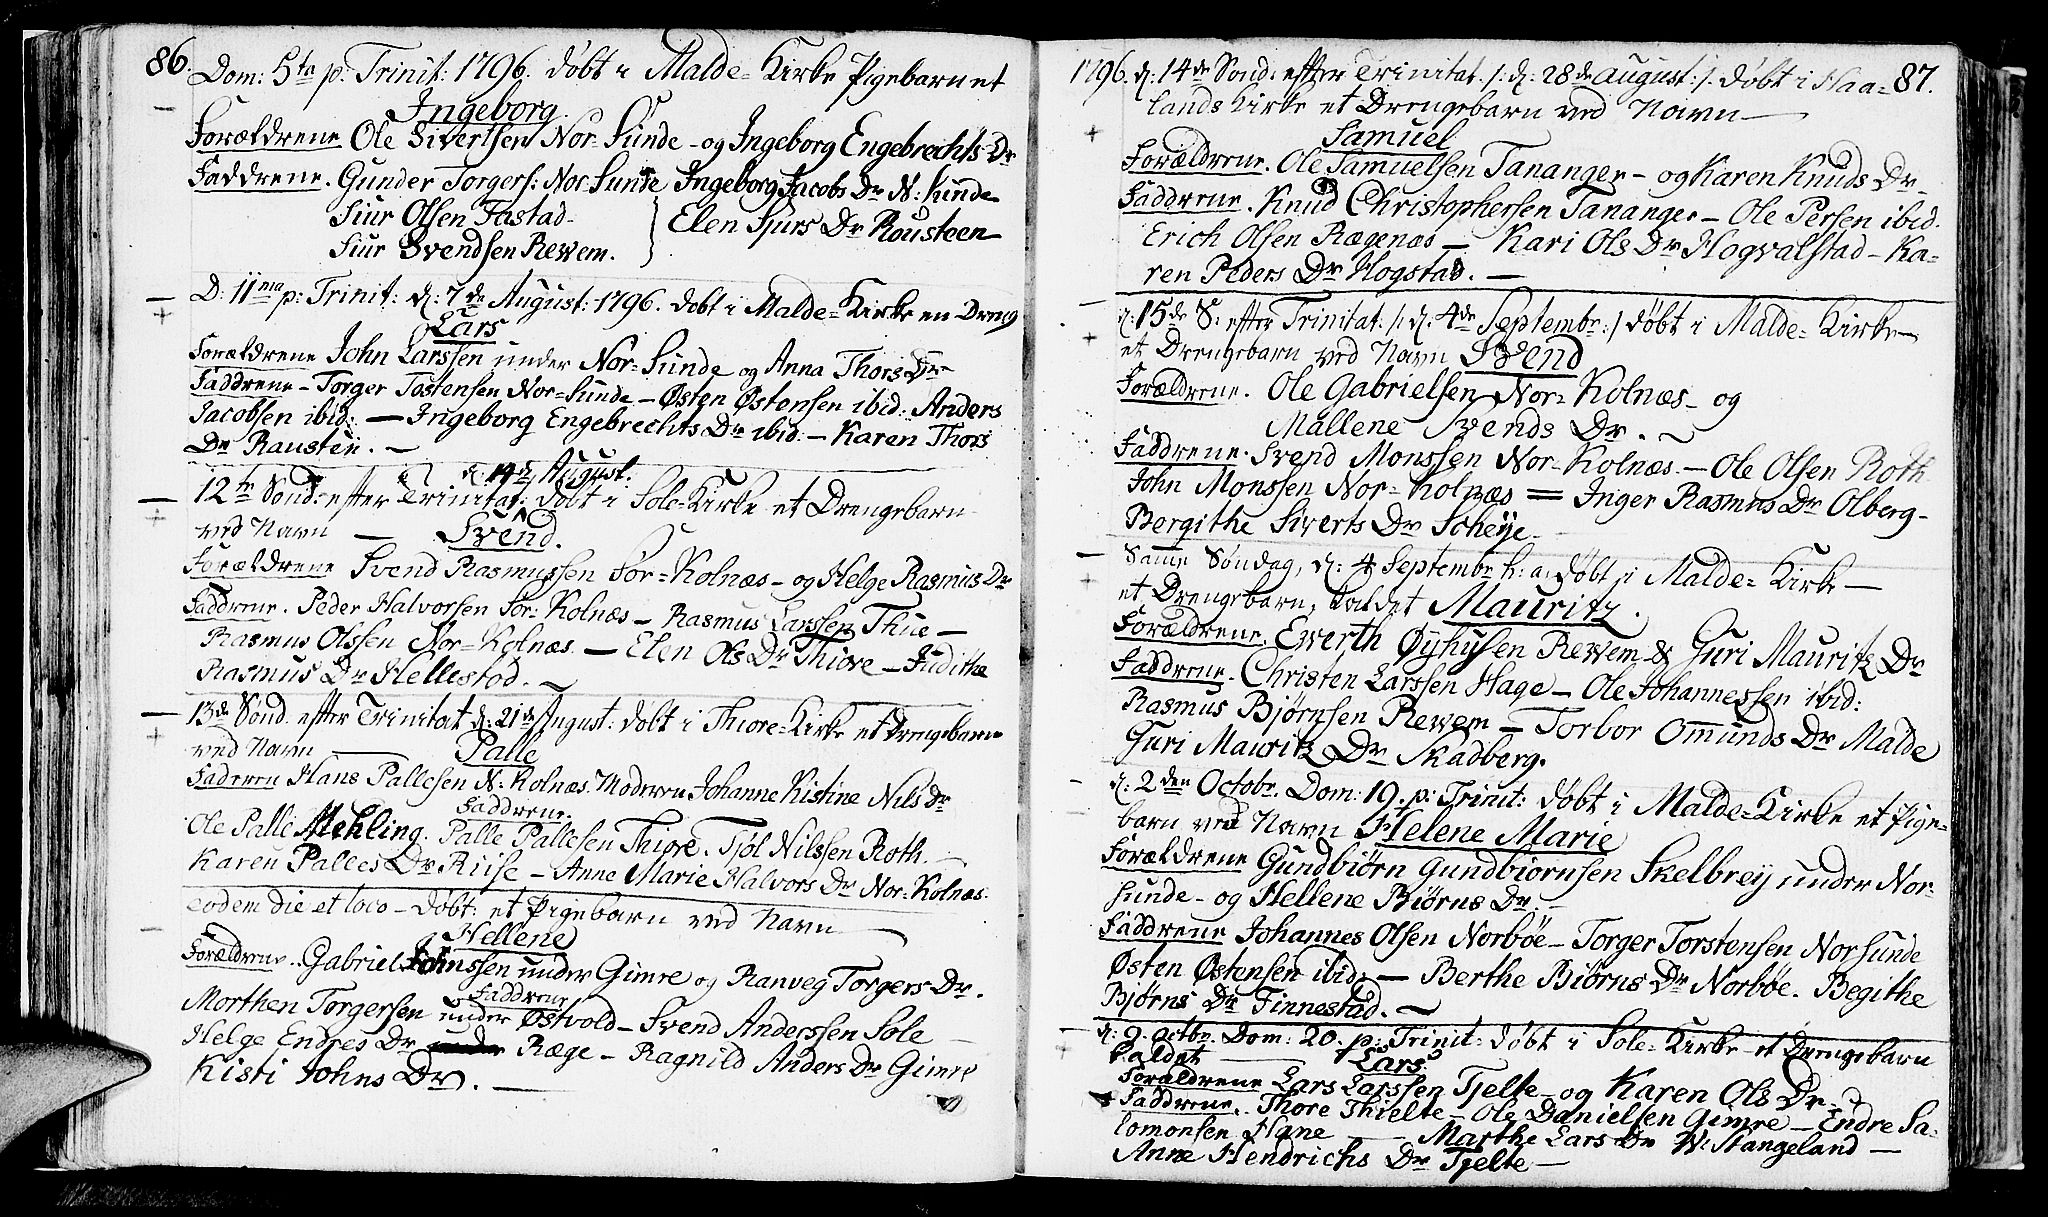 86.
Dom: 5ta p: Trinit: 1796. døbt i Malde=Kirke Pigebarnet
Ingeborg.
Forældrene Ole Sivertsen Nor=Sunde - og Ingeborg Engebrechts Dr
Faddrene. Gunder Torgers: Nor Sunde Ingeborg Jacobs Dr N: Sunde
Siur Olsen Tastad - Elen Sjurs Dr Rousteen
Siur Svendsen Rewem.
D: 11ma p: Trinit: d: 7de August: 1796. døbt i Malde=Kirke en Dreng
Lars
Forældrene John Larssen under Nor=Sunde og Anna Thors Dr
Faddrene - Torger Tostensen Nor=Sunde - Østen Østensen ibid: Anders
Jacobsen ibid: — Ingeborg Engebrechts Dr ibid: - Karen Thors
Dr Raustein. —
d: 14de August:
12te Sønd: efter Trinitat: døbt i Sole=Kirke et Drengebarn
ved Navn — Svend.
Forældrene Svend Rasmussen Sør=Kolnæs - og Helge Rasmus Dr
Faddrene. Peder Halvorsen Sør=Kolnæs - Rasmus Larssen Thue —
Rasmus Olssen Nor=Kolnæs. — Elen Ols Dr Thiore - Judithe
Rasmus Dr Hellestød. —
13de Sønd. efter Trinitat d: 21de August: døbt i Thiore=Kirke et Drengebarn
ved Navn — Palle
Faderen Hans Pallesen N: Kolnæs. Moderen Johanne Kistine Nils Dr
Faddrene.
Ole Palle Mehling. Palle Pallesen Thiore. Tjøl Nilssen Roth. —
Karen Palles Dr Riise - Anne Marie Halvors Dr Nor=Kolnæs.
eodem die et loco - døbt: et Pigebarn ved Navn —
Hellene
Forældrene. Gabriel Johnssen under Gimre og Ranveg Torgers Dr.
Faddrene
Morthen Torgersen under Østvold - Svend Anderssen Sole —
Helge Endres Dr Ræge - Ragnild Anders Dr Gimre
Kisti Johns Dr. —
87.
1796. d: 14de Sønd: efter Trinitat. /: d: 28de August :/. døbt i Haa=
lands Kirke et Drengebarn ved Navn —
Samuel
Forældrene. Ole Samuelsen Tananger - og Karen Knuds Dr -
Faddrene. Knud Christophersen Tananger - Ole Persen ibid.
Erich Olsen Rægenæs — Kari Ols Dr Hogvalstad - Ka=
ren Peders Dr Hogstad. —
d: 15de S: efter Trinitat: /: d. 4de Septembr: :/ døbt i Malde=Kirke —
et Drengebarn ved Navn Svend
Forældrene. Ole Gabrielsen Nor=Kolnæs - og
Mallene Svends Dr. —
Faddrene. Svend Monssen Nor=Kolnæs. - Ole Olsen Roth
John Monssen Nor=Kolnæs = Inger Rasmus Dr Olberg -
Bergithe Siverts Dr Scheije -
Samme Søndag, d: 4 Septembr h: a: døbt i Malde=Kirke —
et Drengebarn, kaldet Mauritz.
Forældrene. Ewerth Øyhusen Rewem & Guri Mauritz Dr
Faddrene. Christen Larssen Hage - Ole Johannessen ibid:
Rasmus Bjørnsen Rewem - Torbor Omunds Dr Malde
Guri Mauritz Dr Skadberg.
d: 2den Octobr. Dom: 19. p: Trinit: døbt i Malde=Kirke et Pige=
barn ved Navn Helene Marie
Forældrene Gundbiørn Gundbiørnsen Skelbreij under Nor=
Sunde - og Hellene Biørns Dr. -
Faddrene Johannes Olsen Norbøe - Torger Torstensen Norsunde
Østen Østensen ibid: — Berthe Biørns Dr Norbøe. Begithe
Bjørns Dr Finnestad. —
d: 9. Octbr. Dom: 20. p: Trinit: døbt i Sole=Kirke et Drengebarn
kaldet — Lars
Forældrene Lars Larssen Tjelte - og Karen Ols Dr. -
Faddrene. Thore Thielte - Ole Danielsen Gimre - Endre Sa=
lomonsen Hane — Marthe Lars Dr W: Stangeland —
Anne Hendrichs Dr Tjelte —